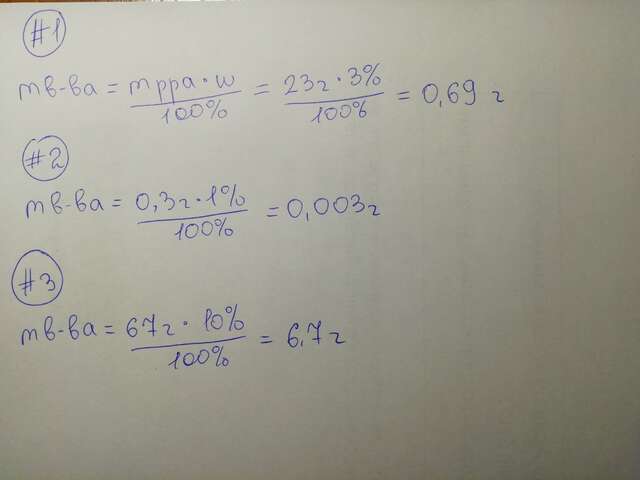 #1
mв-ва = mрра · w / 100% = 23г · 3% / 100% = 0,69 г
#2
mв-ва = 0,3г · 1% / 100% = 0,003г
#3
mв-ва = 67г · 10% / 100% = 6,7г